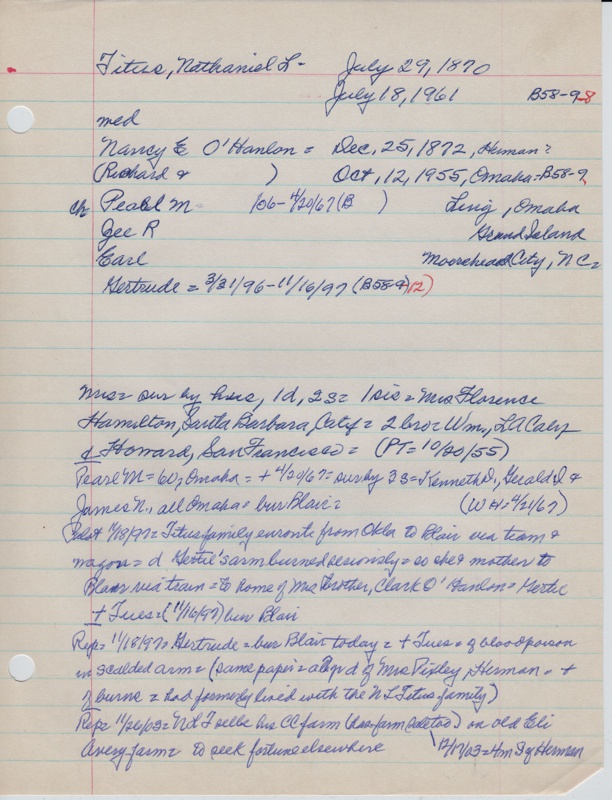 Titus, Nathaniel L- July 29, 1870
July 18, 1961 B58-9-8
med
Nancy E O'Hanlon = Dec, 25, 1872, Herman =
(Richard & ) Oct, 12, 1955, Omaha=B58-9,
ch Pearl M- /06-4/20/67 (B ) Living, Omaha
Gee R Grand Island
Earl Moorehead City, NC=
Gertrude = 3/31/96-11/16/97 (B58-9)12)
Mrs= sur by hus, 1d, 2s= 1sis= Mrs Florence
Hamilton, Santa Barbara, Calif= 2 bro= Wm, LA Calif
& Howard, San Francisco= (PT=10/20/55)
Pearl M=60, Omaha=+4/20/67=sur by 3s=Kenneth D, Gerald D &
James N, all Omaha=bur Blair= (WH=4/21/67)
11/18/97=Titus family enroute from Okla to Blair via team &
wagon=d Gertie's arm burned seriously=so she & mother to
Blair via train=to home of Mrs brother, Clark O'Hanlon=Gertie
+ Tues=(11/16/97) bur Blair
Rep= 11/18/97=Gertrude=bur Blair today=+Tues=of blood poison
in scalded arm=(same paper= d of Mrs Pixley, Herman=+
of burns=had formerly lived with the N L Titus family)
Rep= 11/26/03=N L T sells his CC farm on old Eli
Avery farm= to seek fortune elsewhere 12/17/03=4m S of Herman